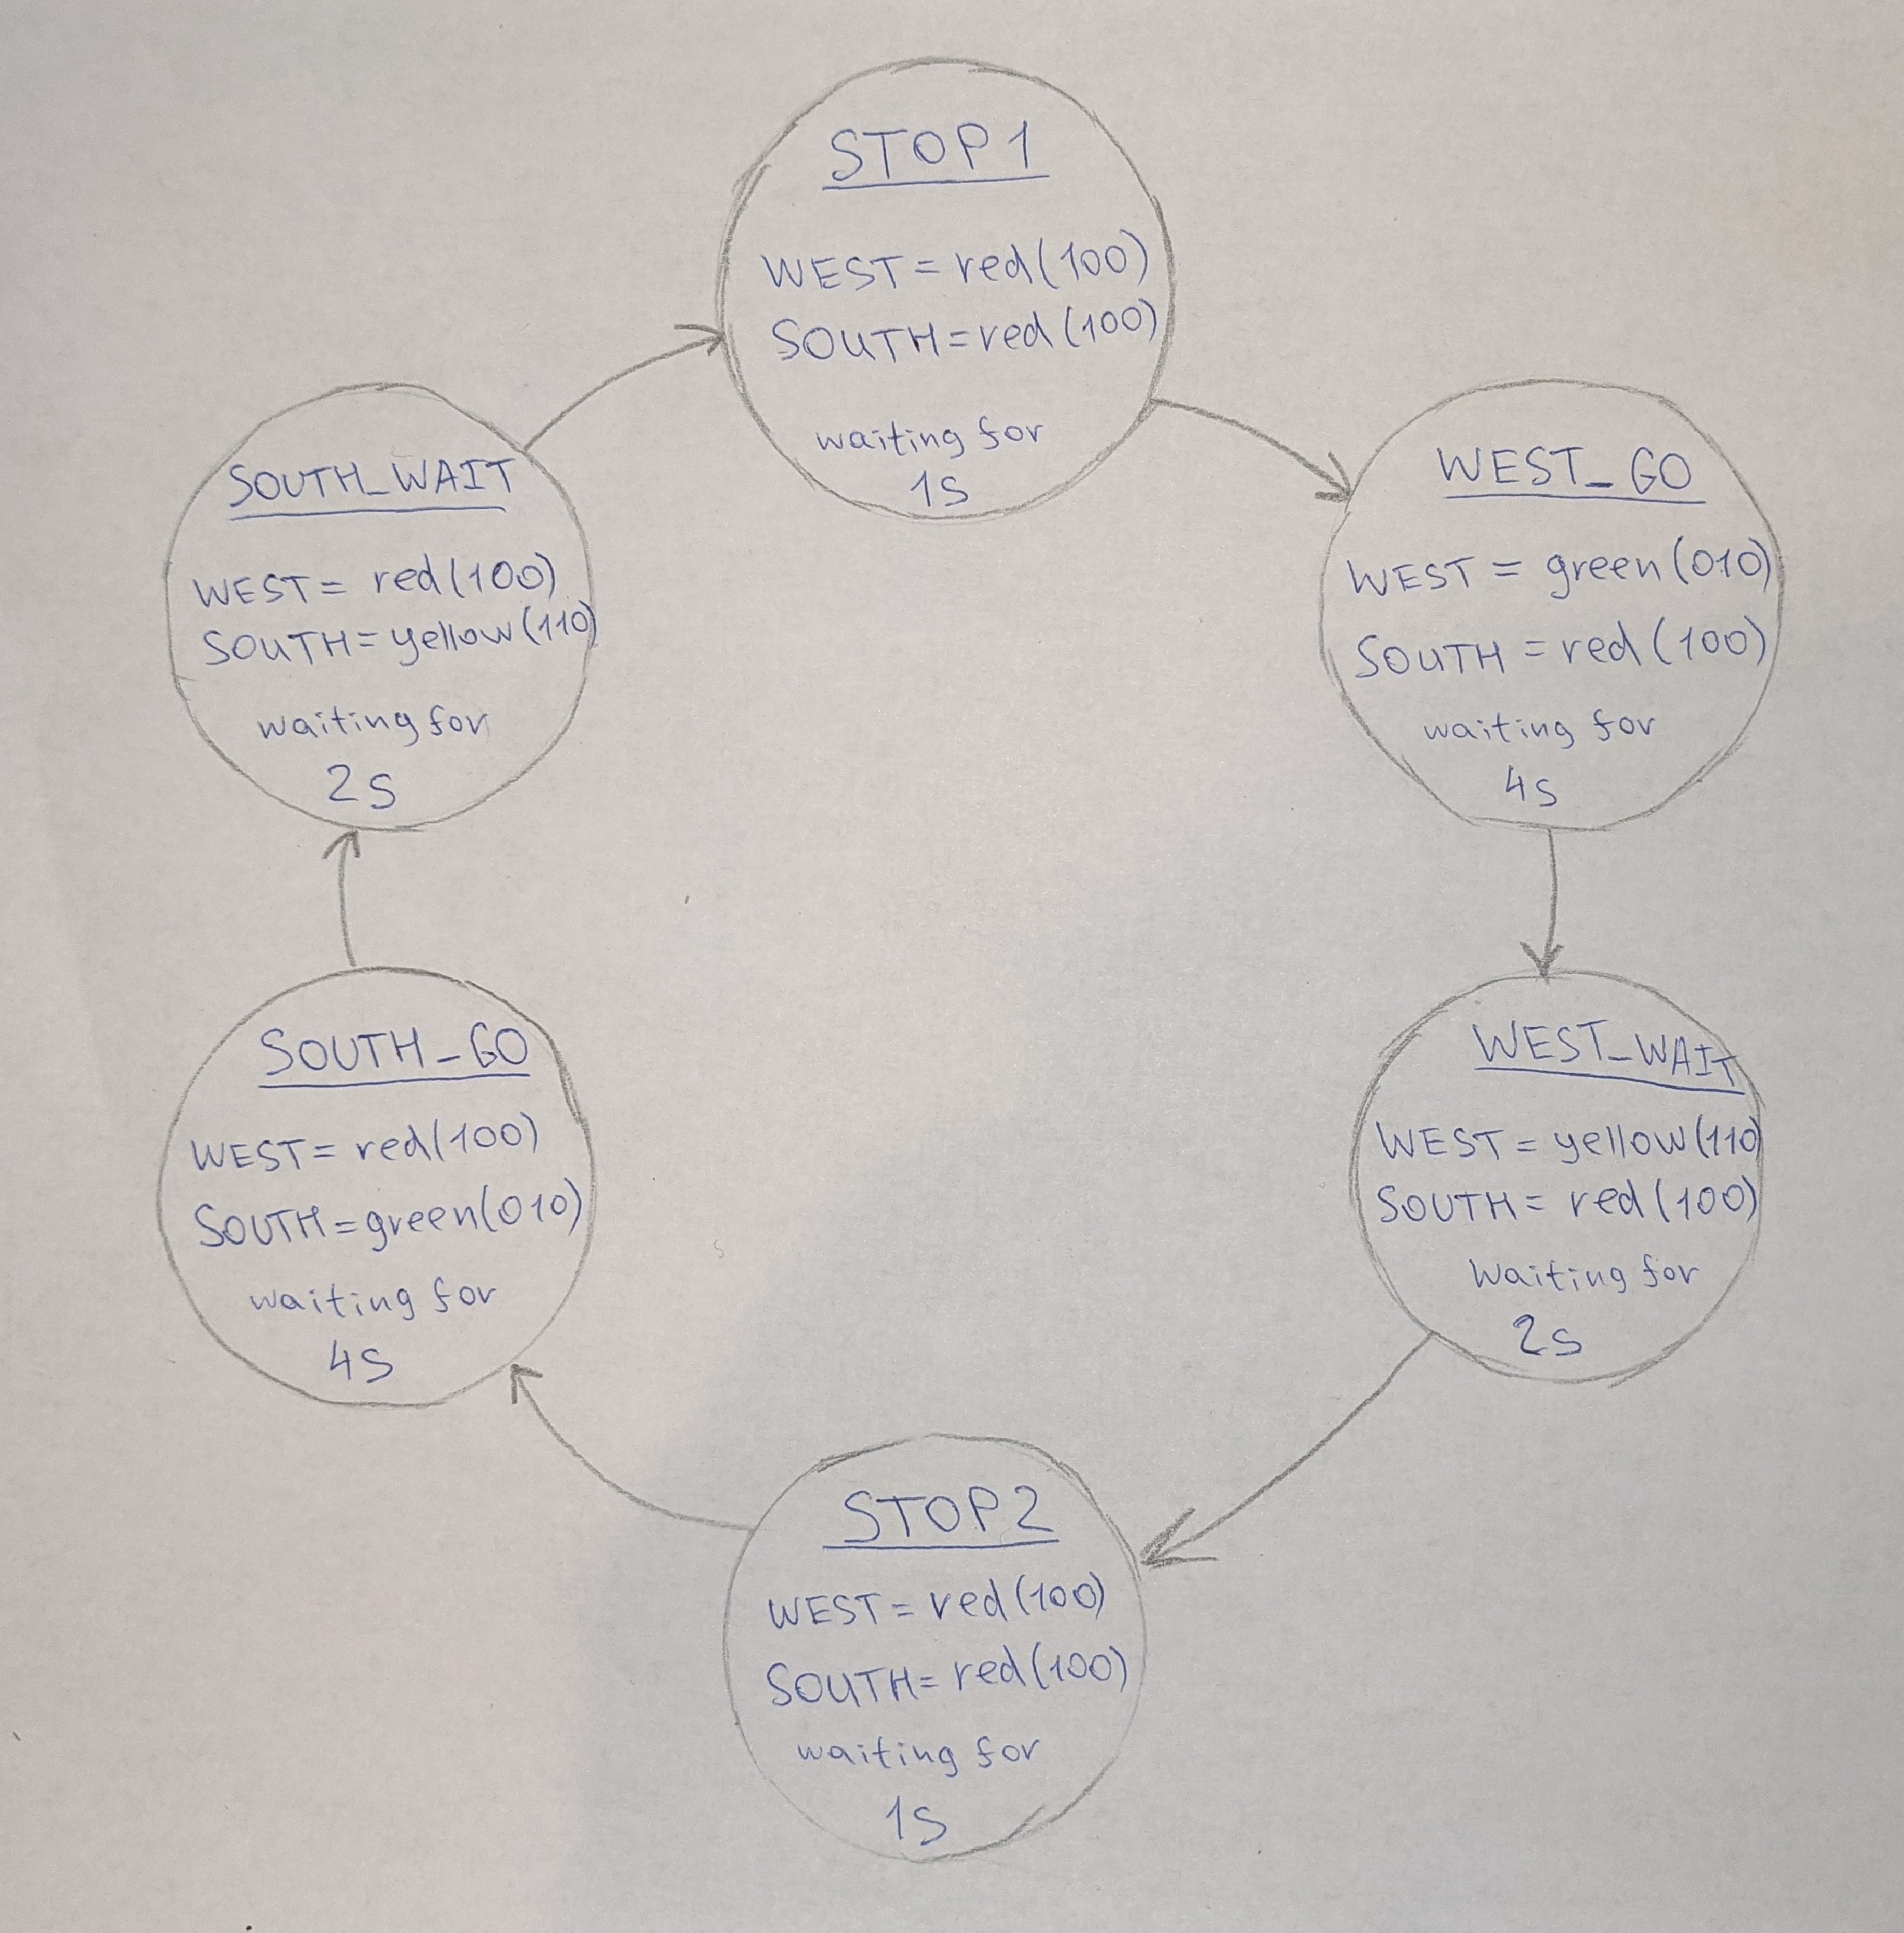 STOP1
WEST = red(100)
SOUTH = red(100)
waiting for
1s
WEST_GO
WEST = green(010)
SOUTH = red(100)
waiting for
4s
WEST_WAIT
WEST = yellow(110)
SOUTH = red(100)
Waiting for
2s
STOP2
WEST = red(100)
SOUTH = red(100)
waiting for
1s
SOUTH_GO
WEST = red(100)
SOUTH = green(010)
waiting for
4s
SOUTH_WAIT
WEST = red(100)
SOUTH = yellow(110)
waiting for
2s